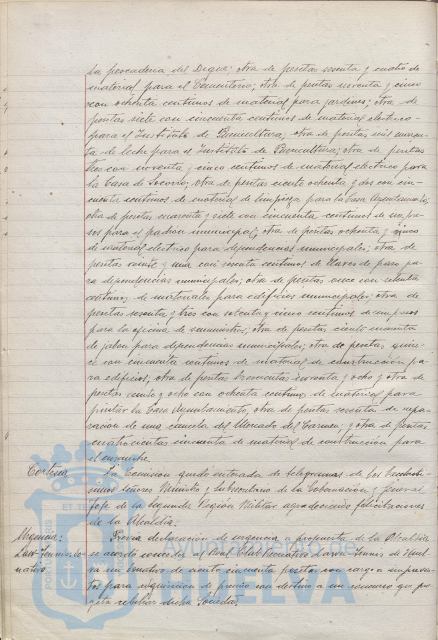 la pescaderia del Dique; otra de pesetas sesenta y cuatro de
material para el Cementerio; otra de pesetas noventa y cinco
con ochenta centimos de material para jardines; otra de
pesetas siete con cincuenta centimos de material electrico
para el Instituto de Puericultura; otra de pesetas seis
de leche para el Instituto de Puericultura; otra de pesetas
tres con noventa y cinco centimos de material electrico para
la Casa de Socorro; otra de pesetas ciento ochenta y dos con cin-
cuenta centimos de material de limpieza para la Casa Ayuntamiento;
otra de pesetas cuarenta y siete con cincuenta centimos de impre-
sos para el padrón municipal; otra de pesetas ochenta y cinco
de material electrico para dependencias municipales; otra de
pesetas veinte y una con sesenta centimos de llaves de paso pa-
ra dependencias municipales; otra de pesetas once con setenta
centimos de materiales para edificios municipales; otra de
pesetas sesenta y tres con setenta y cinco centimos de impresos
para la oficina de suministros; otra de pesetas ciento
de jabon para dependencias municipales; otra de pesetas quin-
ce con cincuenta centimos de material de construcción pa-
ra edificios; otra de pesetas trescientas noventa y ocho y otra de
pesetas veinte y ocho con ochenta centimos de material para
pintar la Casa Ayuntamiento, otra de pesetas sesenta de repa-
racion de una cancela del Mercado del Carmen; y otra de pesetas
cuatrocientas cincuenta de material de construcción para
el ensanche.
La Comision quedó enterada de telegramas de los Excelentí-
simos señores Ministro y Subsecretario de la Gobernación y General
Jefe de la Segunda Región Militar agradeciendo felicitaciones
de la Alcaldia.
Urgencia: Previa declaración de urgencia y propuesta de la Alcaldia
se acordó conceder al Real Club Recreativo de Tennis de Huel-
va un donativo de ciento cincuenta pesetas con cargo a imprevis-
tos para adquisicion de premio con destino a un concurso que pro-
yecta celebrar dicha Sociedad.
Ayuntamiento de
HUELVA